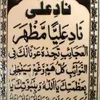 ناد علی
ناد علیا مظهر
العجائب تجده عونا لك فی
النوائب كل هم وغم سینجلی